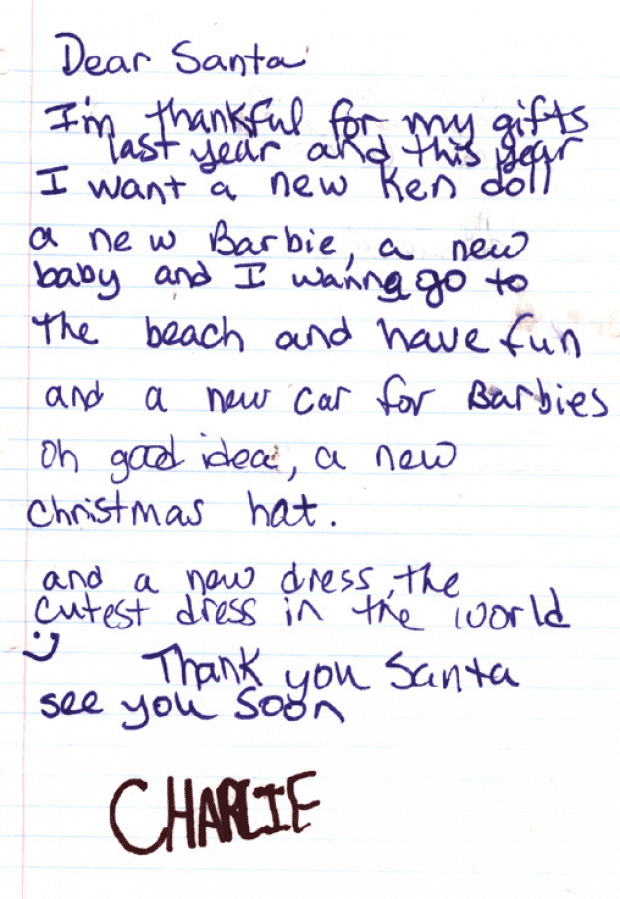 Dear Santa
I'm thankful for my gifts
last year and this year
I want a new Ken doll
a new Barbie, a new
baby and I wanna go to
the beach and have fun
and a new car for Barbies
oh good idea, a new
christmas hat.
and a new dress, the
cutest dress in the world
:)
Thank you Santa
see you soon
CHARLIE